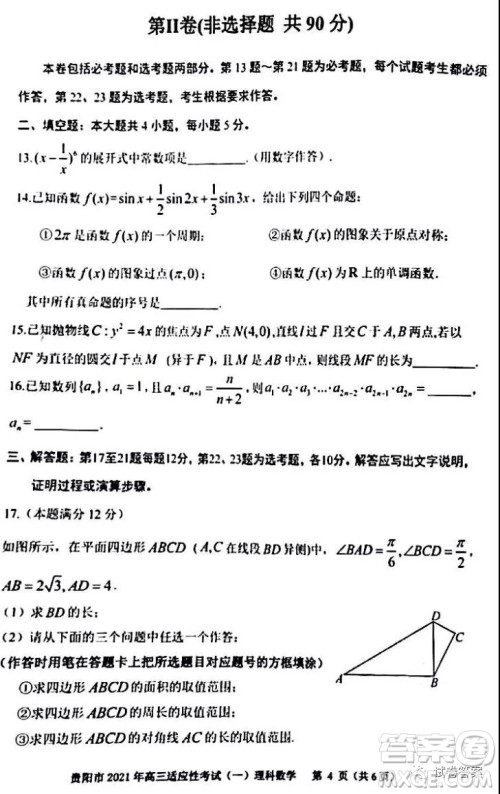 第II卷(非选择题 共90分)
本卷包括必考题和选考题两部分。第13题～第21题为必考题，每个试题考生都必须
作答，第22、23题为选考题，考生根据要求作答。
二、填空题：本大题共4小题，每小题5分。
13.(x-1/x)⁶的展开式中常数项是________.(用数字作答).
14.已知函数f(x)=sin x+1/2 sin 2x+1/3 sin 3x，给出下列四个命题：
①2π是函数f(x)的一个周期； ②函数f(x)的图象关于原点对称；
③函数f(x)的图象过点(π,0)； ④函数f(x)为R上的单调函数.
其中所有真命题的序号是________.
15.已知抛物线C:y²=4x的焦点为F,点N(4,0),直线l于交于C于A,B两点,若以
NF为直径的圆交l于点M（异于F），且M为AB中点，则线段MF的长为________
16.已知数列{aₙ}，a₁=1，且aₙ·aₙ₊₁=n/(n+2)，则a₁·a₂·a₃·…·a₂ₙ₋₂·a₂ₙ₋₁·a₂ₙ=____，
aₙ=________.
三、解答题：第17至21题每题12分，第22、23题为选考题，各10分。解答应写出文字说明，
证明过程或演算步骤。
17.（本题满分12分）
如图所示，在平面四边形ABCD（A,C在线段BD异侧)中，∠BAD=π/6，∠BCD=π/2，
AB=2√3,AD=4.
(1) 求BD的长；
(2) 请从下面的三个问题中任选一个作答：
(作答时用笔在答题卡上把所选题目对应题号的方框填涂)
①求四边形ABCD的面积的取值范围；
②求四边形ABCD的周长的取值范围；
③求四边形ABCD的对角线AC的取值范围.
D
C
A
B
贵阳市2021年高三适应性考试（一）理科数学 第4页（共6页）
试卷答案